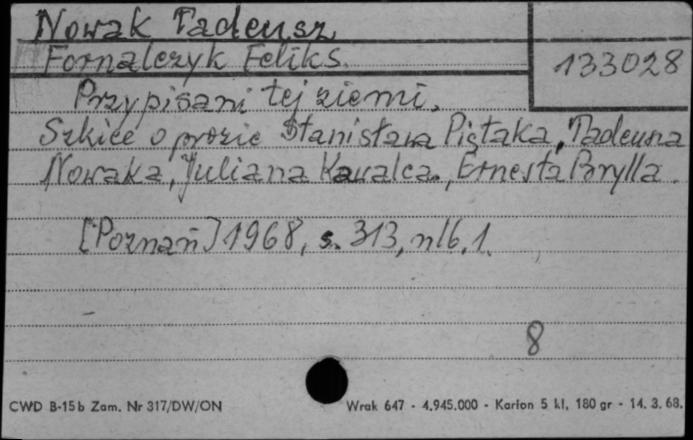 Nowak Tadeusz
Fornalczyk Feliks.
133028
Przypisani tej ziemi.
Szkice o prozie Stanisława Piętaka, Tadeusza
Nowaka, Juliana Kawalca, Ernesta Brylla.
[Poznań] 1968, s. 313, nlb. 1.
8
CWD B-15 b Zam. Nr 317/DW/ON
Wrak 647 - 4.945.000 - Karton 5 kl, 180 gr - 14. 3. 68.